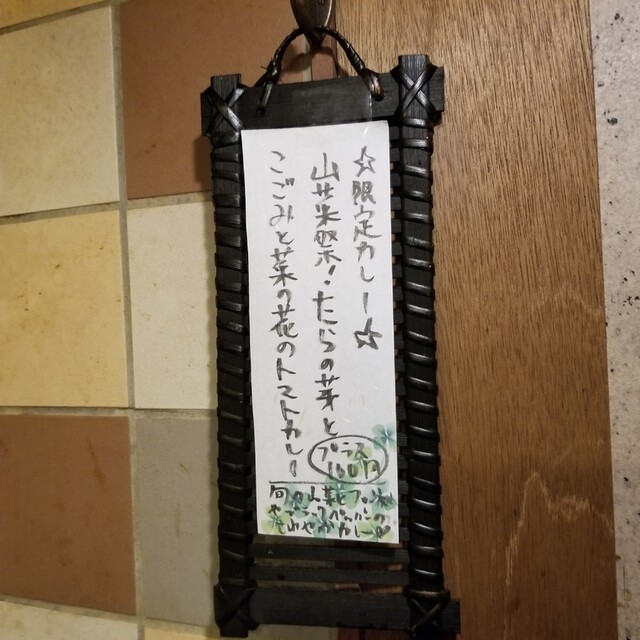 ☆限定カレー☆
山菜祭!たらの芽と
こごみと菜の花のトマトカレー
プラス
100円
旬の山載